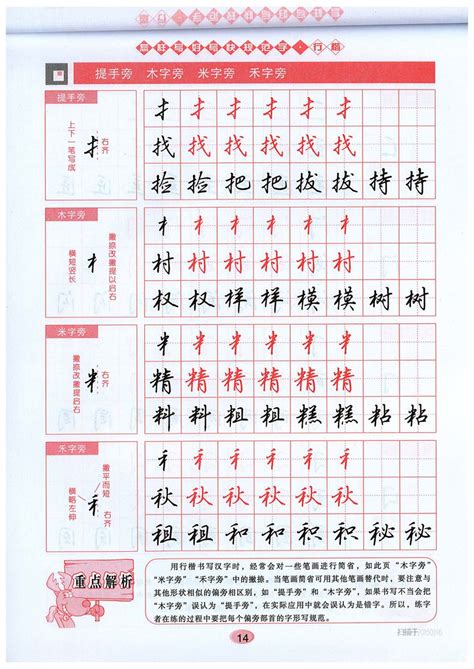 提手旁 木字旁 米字旁 禾字旁
提手旁
上下一笔写成
右齐
扌 扌 扌 扌 扌 扌
找 找 找 找 找 找
捡 捡 把 把 拔 拔 持 持
木字旁
横短竖长
撇捺改撇提以启右
木 木 木 木 木 木
村 村 村 村 村 村
权 权 样 样 模 模 树 树
米字旁
撇捺改撇提启右
右齐
米 米 米 米 米 米
精 精 精 精 精 精
料 料 粗 粗 糕 糕 粘 粘
禾字旁
横略左伸
撇平而短
右齐
禾 禾 禾 禾 禾 禾
秋 秋 秋 秋 秋 秋
租 租 和 和 积 积 秘 秘
重点解析
用行楷书写汉字时，经常会对一些笔画进行简省，如此页“木字旁”
“米字旁”“禾字旁”中的撇捺。当笔画简省可用其他笔画替代时，要注意与
其他形状相似的偏旁相区别，如“提手旁”和“木字旁”，如果书写不当会把
“木字旁”误认为“提手旁”，在实际应用中就会误认为是错字。所以，练字
者在练的过程中要把每个偏旁部首的字形写规范。
14